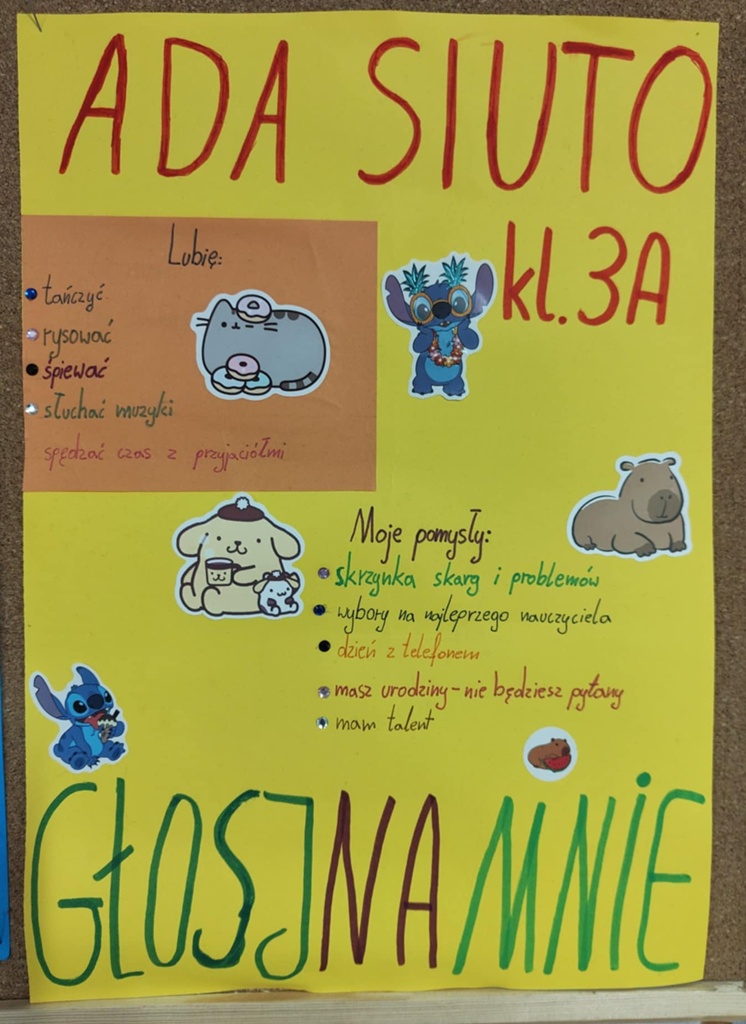 ADA SIUTO
kl. 3A
Lubię:
tańczyć
rysować
śpiewać
słuchać muzyki
spędzać czas z przyjaciółmi
Moje pomysły:
skrzynka skarg i problemów
wybory na najleprzego nauczyciela
dzień z telefonem
masz urodziny - nie będziesz pytany
mam talent
GŁOSJ NA MNIE